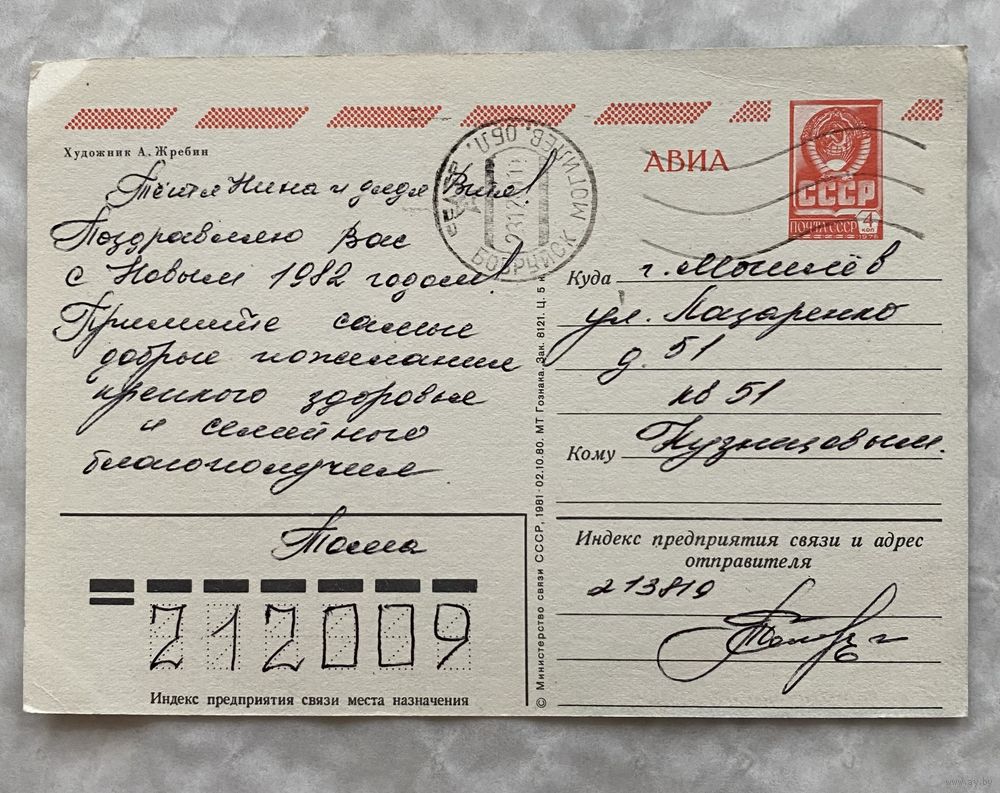 Художник А. Жребин
Тётя Нина и дядя Витя!
Поздравляю Вас
с Новым 1982 годом!
Примите самые
добрые пожелания
крепкого здоровья
и семейного
благополучия
Толма
212009
Индекс предприятия связи места назначения
© Министерство связи СССР, 1981 - 02.10.80. МТ Гознака. Зак. 8121. Ц. 5 к
БОБРУЙСК МОГИЛЕВ. ОБЛ.
АВИА
СССР
ПОЧТА СССР
4 КОП
1976
Куда г. Могилёв
ул. Лазаренко
д. 51
кв 51
Кому Кузнецовым.
Индекс предприятия связи и адрес
отправителя
213819
www.ay.by